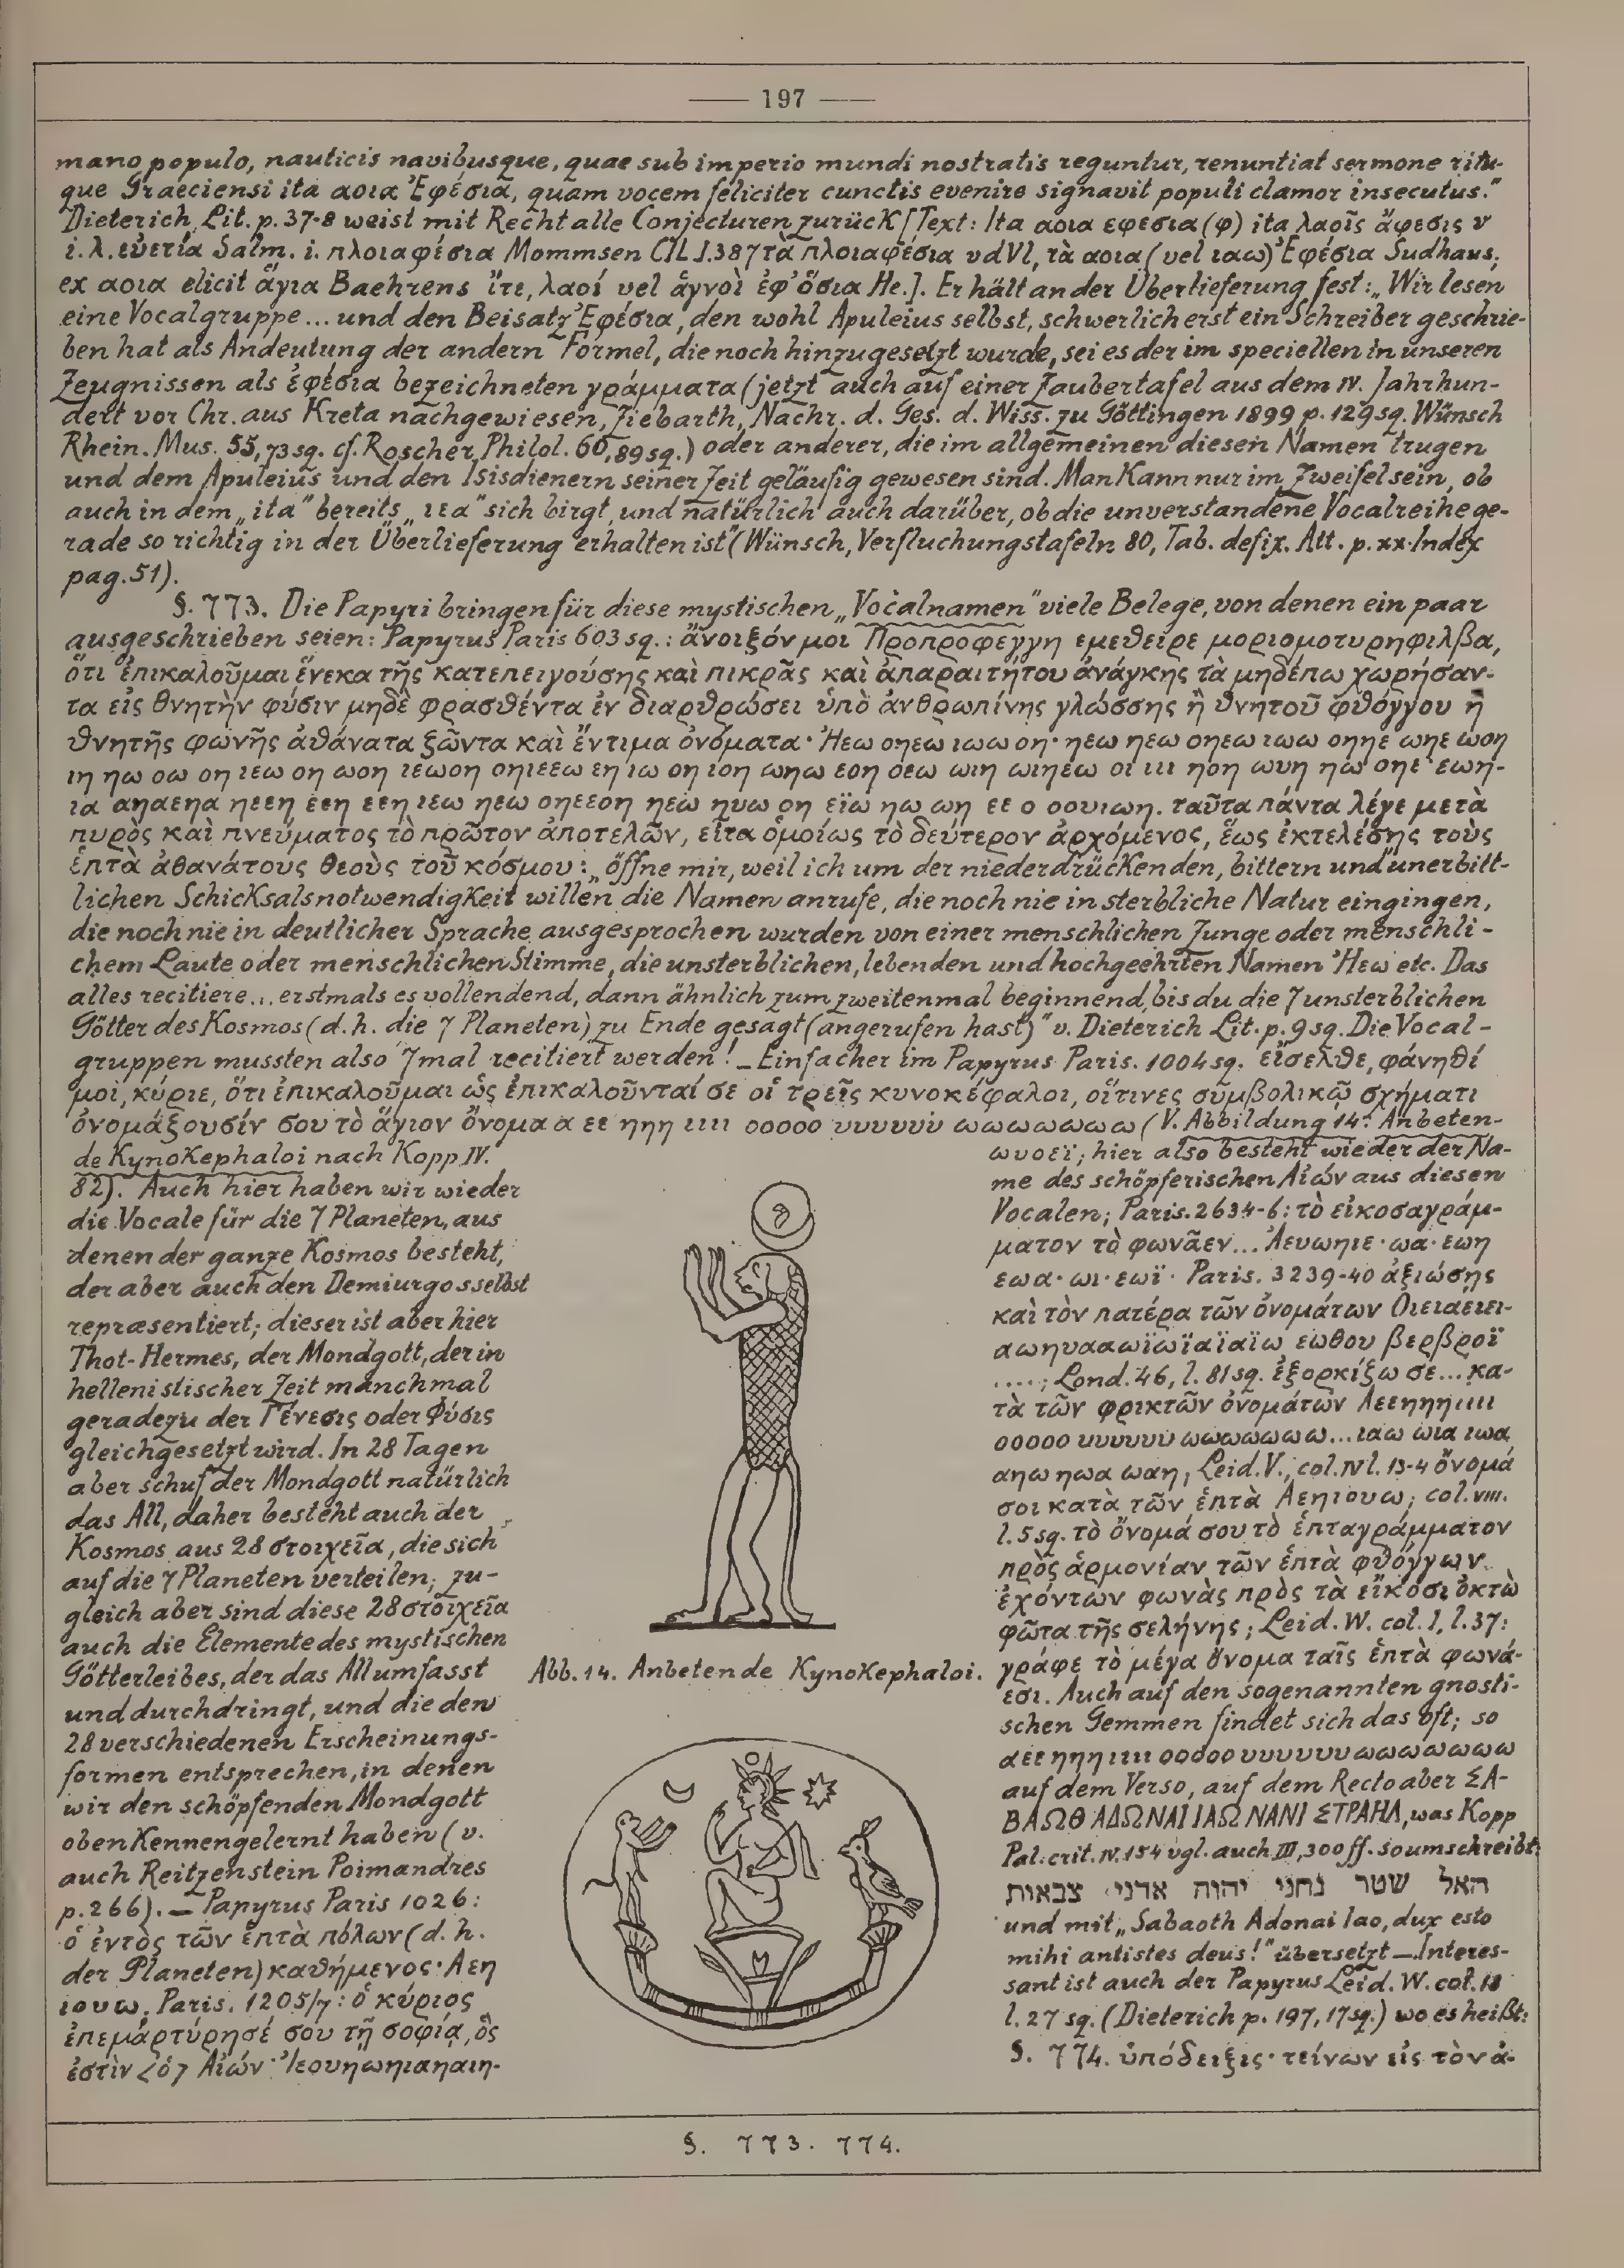 — 197 —
mano populo, nauticis navibusque, quae sub imperio mundi nostratis reguntur, renuntiat sermone ritu-
que Graeciensi ita αοια Ἐφέσια, quam vocem feliciter cunctis evenire signavit populi clamor insecutus."
Dieterich, Lit. p. 37-8 weist mit Recht alle Conjecturen zurück [Text: Ita αοια εφεσια (φ) ita λαοῖς ἄφεσις v
i. λ. εὐετία Salm. i. πλοιαφέσια Mommsen CIL I.387 τὰ πλοιαφέσια vdVl, τὰ αοια (vel ιαω) Ἐφέσια Sudhaus,
ex αοια elicit ἅγια Baehrens ἴτε, λαοί vel ἁγνοὶ ἐφ' ὅσια He.]. Er hält an der Überlieferung fest: „Wir lesen
eine Vocalgruppe ... und den Beisatz Ἐφέσια, den wohl Apuleius selbst, schwerlich erst ein Schreiber geschrie-
ben hat als Andeutung der andern Formel, die noch hinzugesetzt wurde, sei es der im speciellen in unseren
Zeugnissen als ἐφέσια bezeichneten γράμματα (jetzt auch auf einer Zaubertafel aus dem IV. Jahrhun-
dert vor Chr. aus Kreta nachgewiesen, Ziebarth, Nachr. d. Ges. d. Wiss. zu Göttingen 1899 p. 129sq. Wünsch
Rhein. Mus. 55,73sq. cf. Roscher Philol. 60,89sq.) oder anderer, die im allgemeinen diesen Namen trugen
und dem Apuleius und den Isisdienern seiner Zeit geläufig gewesen sind. Man kann nur im Zweifel sein, ob
auch in dem „ita" bereits „ιεα" sich birgt, und natürlich auch darüber, ob die unverstandene Vocalreihe ge-
rade so richtig in der Überlieferung erhalten ist" (Wünsch, Verfluchungstafeln 80, Tab. defix. Att. p. xx. Index
pag. 51).
§. 773. Die Papyri bringen für diese mystischen „Vocalnamen" viele Belege, von denen ein paar
ausgeschrieben seien: Papyrus Paris 603sq.: ἄνοιξόν μοι Προπροφεγγη εμεθειρε μοριομοτυρηφιλβα,
ὅτι ἐπικαλοῦμαι ἕνεκα τῆς κατεπειγούσης καὶ πικρᾶς καὶ ἀπαραιτήτου ἀνάγκης τὰ μηδέπω χωρήσαν-
τα εἰς θνητὴν φύσιν μηδὲ φρασθέντα ἐν διαρθρώσει ὑπὸ ἀνθρωπίνης γλώσσης ἢ θνητοῦ φθόγγου ἢ
θνητῆς φωνῆς ἀθάνατα ζῶντα καὶ ἔντιμα ὀνόματα· Ἠεω οηεω ιωω οη· ηεω ηεω οηεω ιωω οηηε ωηε ωοη
ιη ηω οω οη ιεω οη ωοη ιεωοη οηιεεω εη ιω οη ιοη ωηω εοη οεω ωιη ωιηεω οι ιιι ηοη ωυη ηω οηε εωη-
ια αηαεηα ηεεη εεη εεη ιεω ηεω οηεεοη ηεω ηυω οη εϊω ηω ωη εε ο οουιωη. ταῦτα πάντα λέγε μετὰ
πυρὸς καὶ πνεύματος τὸ πρῶτον ἀποτελῶν, εἶτα ὁμοίως τὸ δεύτερον ἀρχόμενος, ἕως ἐκτελέσῃς τοὺς
ἑπτὰ ἀθανάτους θεοὺς τοῦ κόσμου: „öffne mir, weil ich um der niederdrückenden, bittern und unerbitt-
lichen Schicksalsnotwendigkeit willen die Namen anrufe, die noch nie in sterbliche Natur eingingen,
die noch nie in deutlicher Sprache ausgesprochen wurden von einer menschlichen Zunge oder menschli-
chem Laute oder menschlichen Stimme, die unsterblichen, lebenden und hochgeehrten Namen Ἠεω etc. Das
alles recitiere ... erstmals es vollendend, dann ähnlich zum zweitenmal beginnend, bis du die 7 unsterblichen
Götter des Kosmos (d. h. die 7 Planeten) zu Ende gesagt (angerufen hast)" v. Dieterich Lit. p. 9sq. Die Vocal-
gruppen mussten also 7mal recitiert werden! — Einfacher im Papyrus Paris. 1004sq. εἴσελθε, φάνηθί
μοι, κύριε, ὅτι ἐπικαλοῦμαι ὡς ἐπικαλοῦνταί σε οἱ τρεῖς κυνοκέφαλοι, οἵτινες συμβολικῷ σχήματι
ὀνομάζουσίν σου τὸ ἅγιον ὄνομα α εε ηηη ιιιι οοοοο υυυυυυ ωωωωωωω (V. Abbildung 14: Anbeten-
de Kynokephaloi nach Kopp IV.
82). Auch hier haben wir wieder
die Vocale für die 7 Planeten, aus
denen der ganze Kosmos besteht,
der aber auch den Demiurgos selbst
repræsentiert; dieser ist aber hier
Thot-Hermes, der Mondgott, der in
hellenistischer Zeit manchmal
geradezu der Γένεσις oder Φύσις
gleichgesetzt wird. In 28 Tagen
aber schuf der Mondgott natürlich
das All, daher besteht auch der
Kosmos aus 28 στοιχεῖα, die sich
auf die 7 Planeten verteilen; zu-
gleich aber sind diese 28 στοιχεῖα
auch die Elemente des mystischen
Götterleibes, der das All umfasst
und durchdringt, und die den
28 verschiedenen Erscheinungs-
formen entsprechen, in denen
wir den schöpfenden Mondgott
oben kennengelernt haben (v.
auch Reitzenstein Poimandres
p. 266). — Papyrus Paris 1026:
ὁ ἐντὸς τῶν ἑπτὰ πόλων (d. h.
der Planeten) καθήμενος· Αεη
ιουω, Paris. 1205/7: ὁ κύριος
ἐπεμαρτύρησέ σου τῇ σοφίᾳ, ὅς
ἐστὶν <ὁ> Αἰών· Ἰεουηωηιαηαιη-
Abb. 14. Anbetende Kynokephaloi.
ωυοεϊ; hier also besteht wieder der Na-
me des schöpferischen Αἰών aus diesen
Vocalen; Paris. 2634-6: τὸ εἰκοσαγράμ-
ματον τὸ φωνᾶεν... Ἀευωηιε·ωα·εωη
εωα·ωι·εωϊ· Paris. 3239-40 ἀξιώσῃς
καὶ τὸν πατέρα τῶν ὀνομάτων Οιειαειει-
αωηυααωϊωϊαϊαϊω εωθου βερβροϊ
....; Lond. 46, l. 81sq. ἐξορκίζω σε... κα-
τὰ τῶν φρικτῶν ὀνομάτων Αεεηηηιιιι
οοοοο υυυυυυ ωωωωωωω... ιαω ωια ιωα
αηω ηωα ωαη; Leid. V., col. IV l. 13-4 ὄνομά
σοι κατὰ τῶν ἑπτὰ Αεηιουω; col. VIII.
l. 5sq. τὸ ὄνομά σου τὸ ἑπταγράμματον
πρὸς ἁρμονίαν τῶν ἑπτὰ φθόγγων
ἐχόντων φωνὰς πρὸς τὰ εἴκοσι ὀκτὼ
φῶτα τῆς σελήνης; Leid. W. col. I, l. 37:
γράφε τὸ μέγα ὄνομα ταῖς ἑπτὰ φωνά-
εσι. Auch auf den sogenannten gnosti-
schen Gemmen findet sich das oft; so
αεε ηηη ιιιι οοοοο υυυυυυ ωωωωωωω
auf dem Verso, auf dem Recto aber ΣΑ-
ΒΑΩΘ ΑΔΩΝΑΙ ΙΑΩ ΝΑΝΙ ΣΤΡΑΗΛ, was Kopp
Pal. crit. IV. 154 vgl. auch III, 300 ff. so umschreibt:
האל שטר נחני יהוה אדני צבאות
und mit „Sabaoth Adonai Iao, dux esto
mihi antistes deus!" übersetzt — Interes-
sant ist auch der Papyrus Leid. W. col.
l. 27 sq. (Dieterich p. 197, 17sq.) wo es heißt:
§. 774. ὑπόδειξις· τείνων εἰς τὸν ἀ-
§. 773. 774.